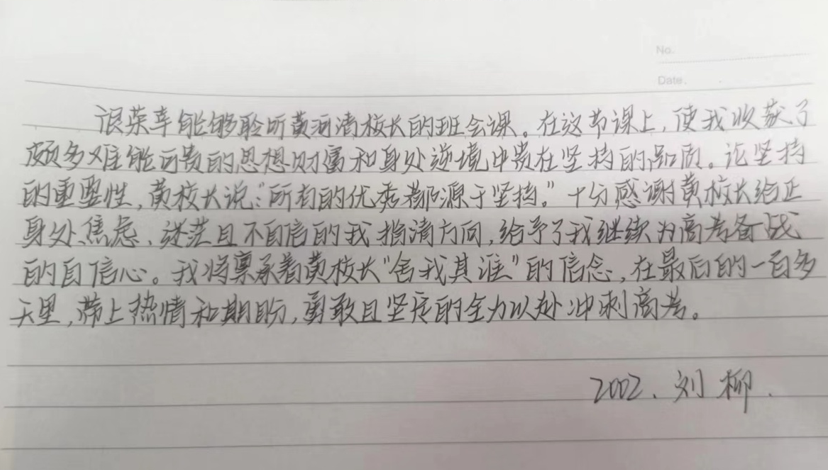 No.
Date.
很荣幸能够聆听黄河清校长的班会课。在这节课上，使我收获了
颇多难能可贵的思想财富和身处逆境中贵在坚持的品质。论坚持
的重要性，黄校长说：“所有的优秀都源于坚持。”十分感谢黄校长给正
身处焦虑、迷茫且不自信的我指清方向，给予了我继续为高考备战
的自信心。我将禀承着黄校长“舍我其谁”的信念，在最后的一百多
天里，带上热情和期盼，勇敢且坚定的全力以赴冲刺高考。
2002、刘柳.